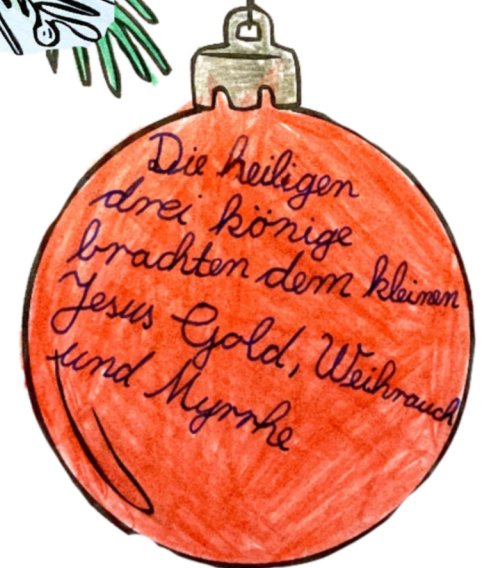 Die heiligen
drei könige
brachten dem kleinen
Jesus Gold, Weihrauch
und Myrrhe